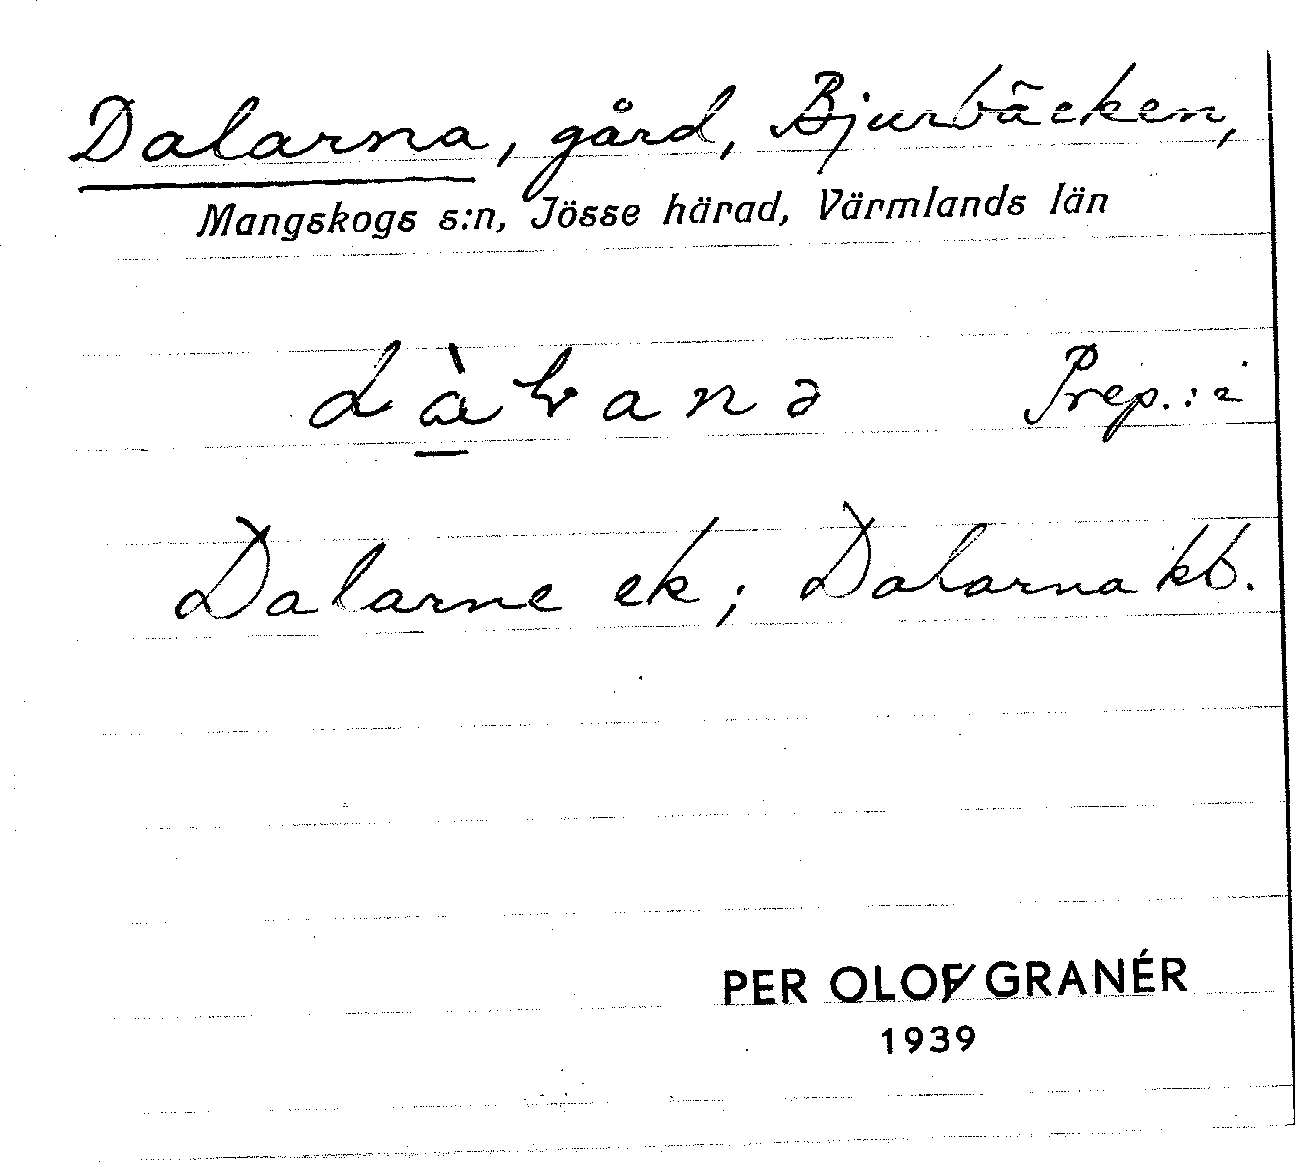 Dalarna, gård, Bjurbäcken,
Mangskogs s:n, Jösse härad, Värmlands län
Prep.: i
Dalarne ek; Dalarna kb.
PER OLOF GRANÉR
1939